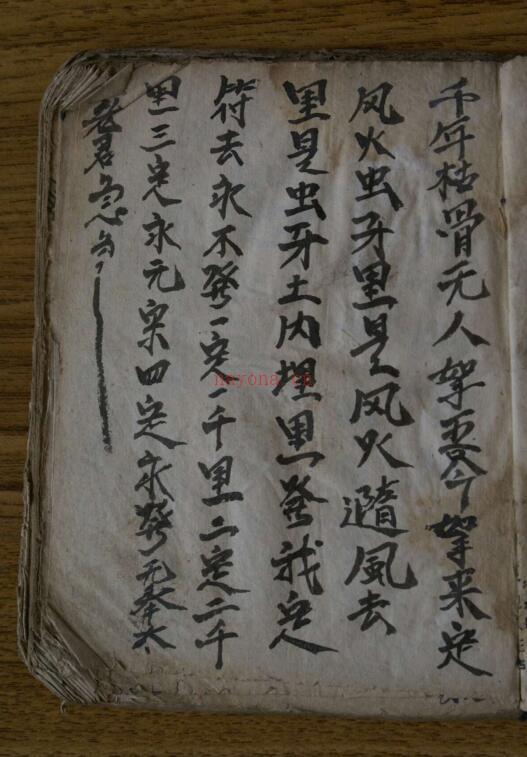 千年枯骨无人拏吾今拏来定
风火虫牙里是风火随風去
里是虫牙土内埋黑發我定
符去永不發一定一千里二定二千
里三定永元宗四定永發无奉太
老君急令
nayona.cn